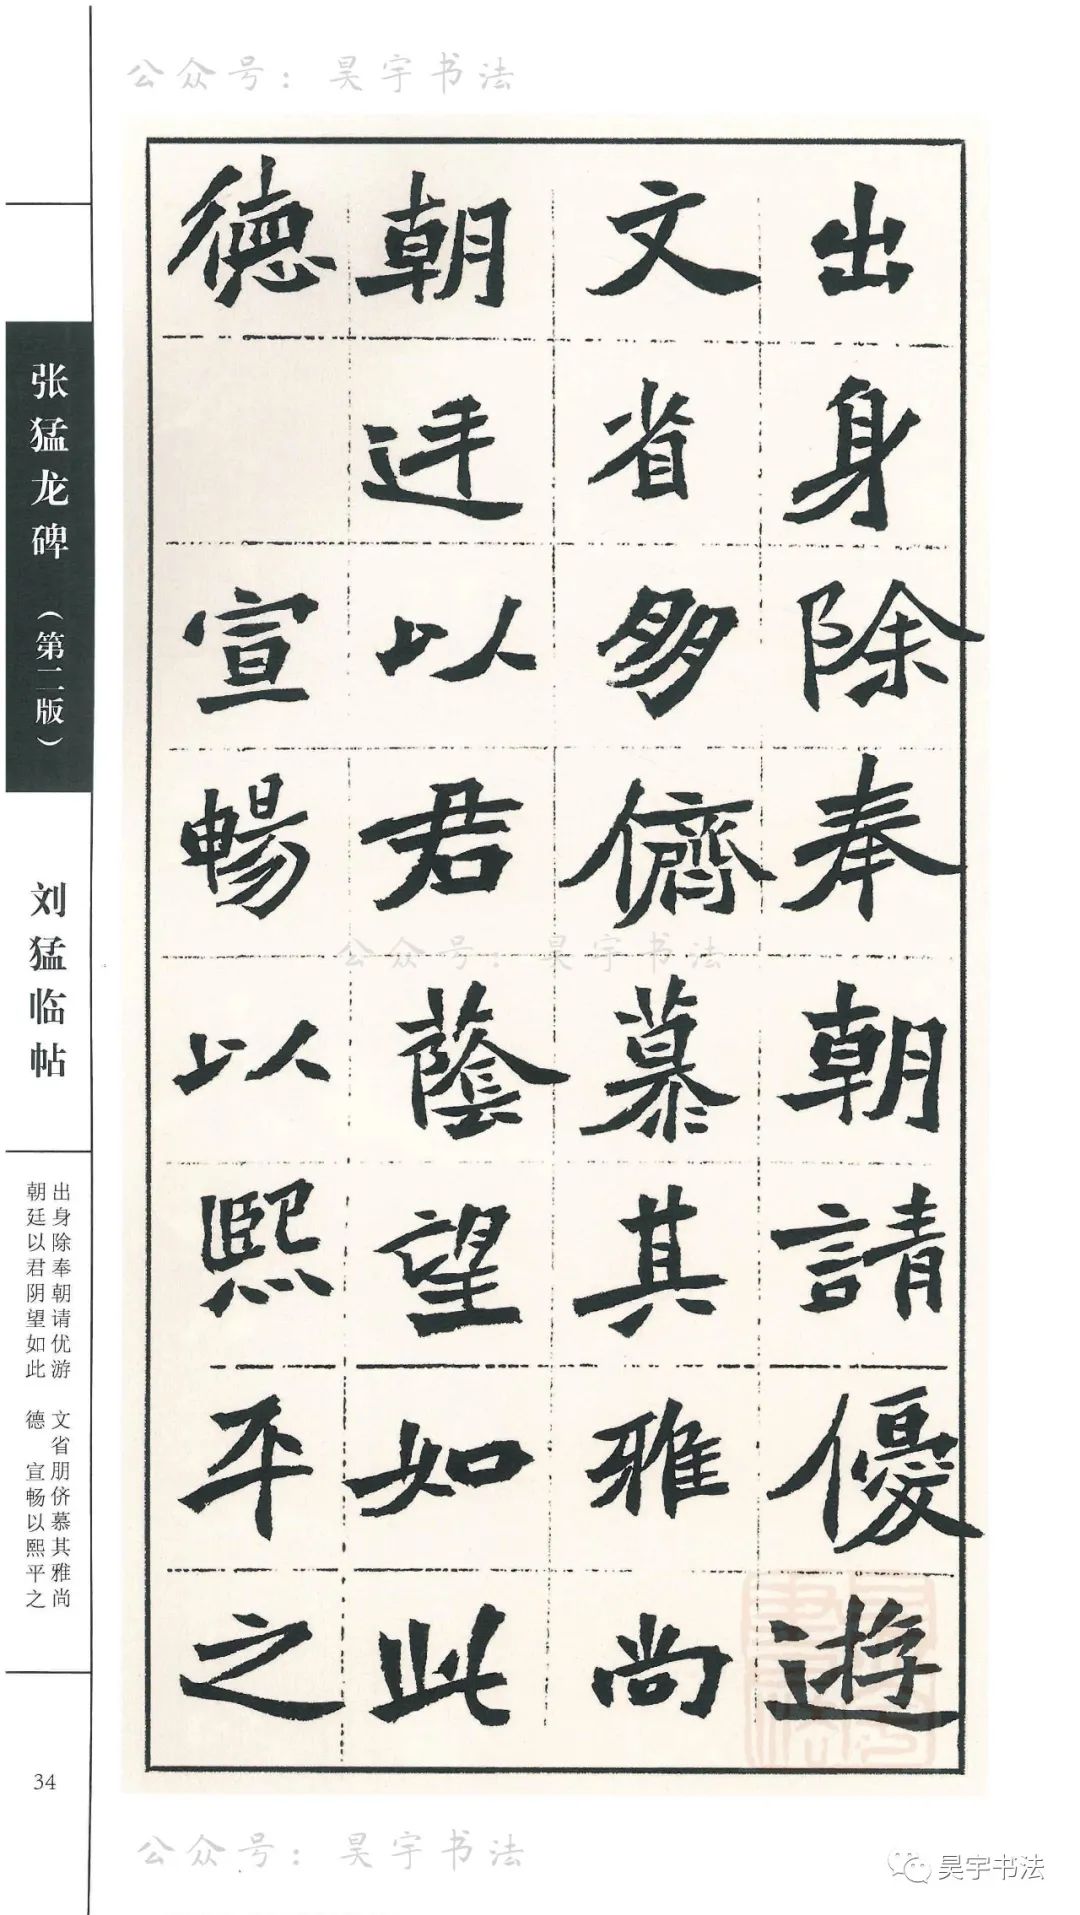 公众号：昊宇书法
出身除奉朝請優遊
文省朋儕慕其雅尚
朝廷以君蔭望如此
德 宣暢以熙平之
公众号：昊宇书法
张猛龙碑（第二版）
刘猛临帖
出身除奉朝请优游 文省朋侪慕其雅尚
朝廷以君阴望如此 德 宣畅以熙平之
34
公众号：昊宇书法
昊宇书法